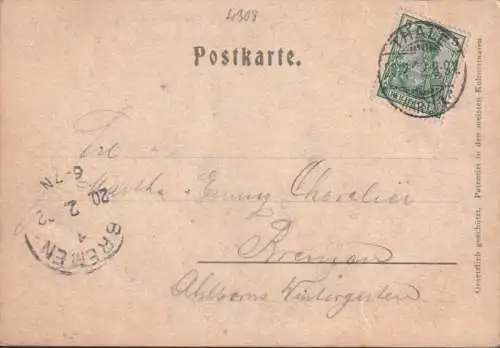 4308
Postkarte.
THALE
Martha Chevalier
Bremen
Ahlborns Wintergarten
BREMEN
4
20 2 02
6-7N
Gesetzlich geschützt. Patentirt in den meisten Kulturstaaten.